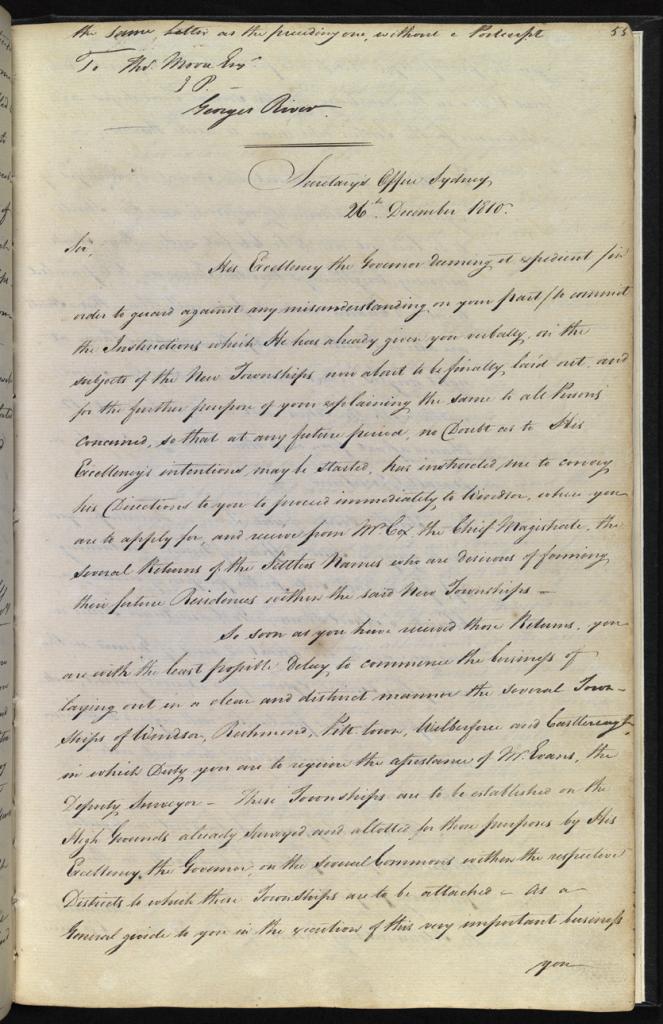 the same, letter as the preceding one, without a Postcript
55
To Thos. Moore Esqr.
J P. —
Georges River.
Secretary's Office Sydney,
26th. December 1810.
Sir,
His Excellency the Governor deeming it expedient /in
order to guard against any misunderstanding on your part/ to commit
the Instructions which He has already given you verbally, on the
subjects of the New Townships now about to be finally laid out, and
for the further purpose of your explaining the same to all Persons
concerned, so that at any future period, no Doubt as to His
Excellency's intentions may be started, has instructed me to convey
his Directions to you to proceed immediately to Windsor, where you
are to apply for, and receive from Mr. Cox the Chief Magistrate, the
several Returns of the Settlers Names who are desirous of forming
their future Residences within the said New Townships —
So soon as you have received those Returns, you
are with the least possible Delay, to commence the business of
laying out in a clear and distinct manner the several Town-
ships of Windsor, Richmond, Pitt town, Wilberforce and Castlereagh,
in which Duty you are to require the assistance of Mr. Evans, the
Deputy Surveyor — These Townships are to be established on the
High Grounds already surveyed and allotted for those purposes by His
Excellency the Governor, on the several Commons within the respective
Districts to which these Townships are to be attached — As a
General guide to you in the execution of this very important business
you